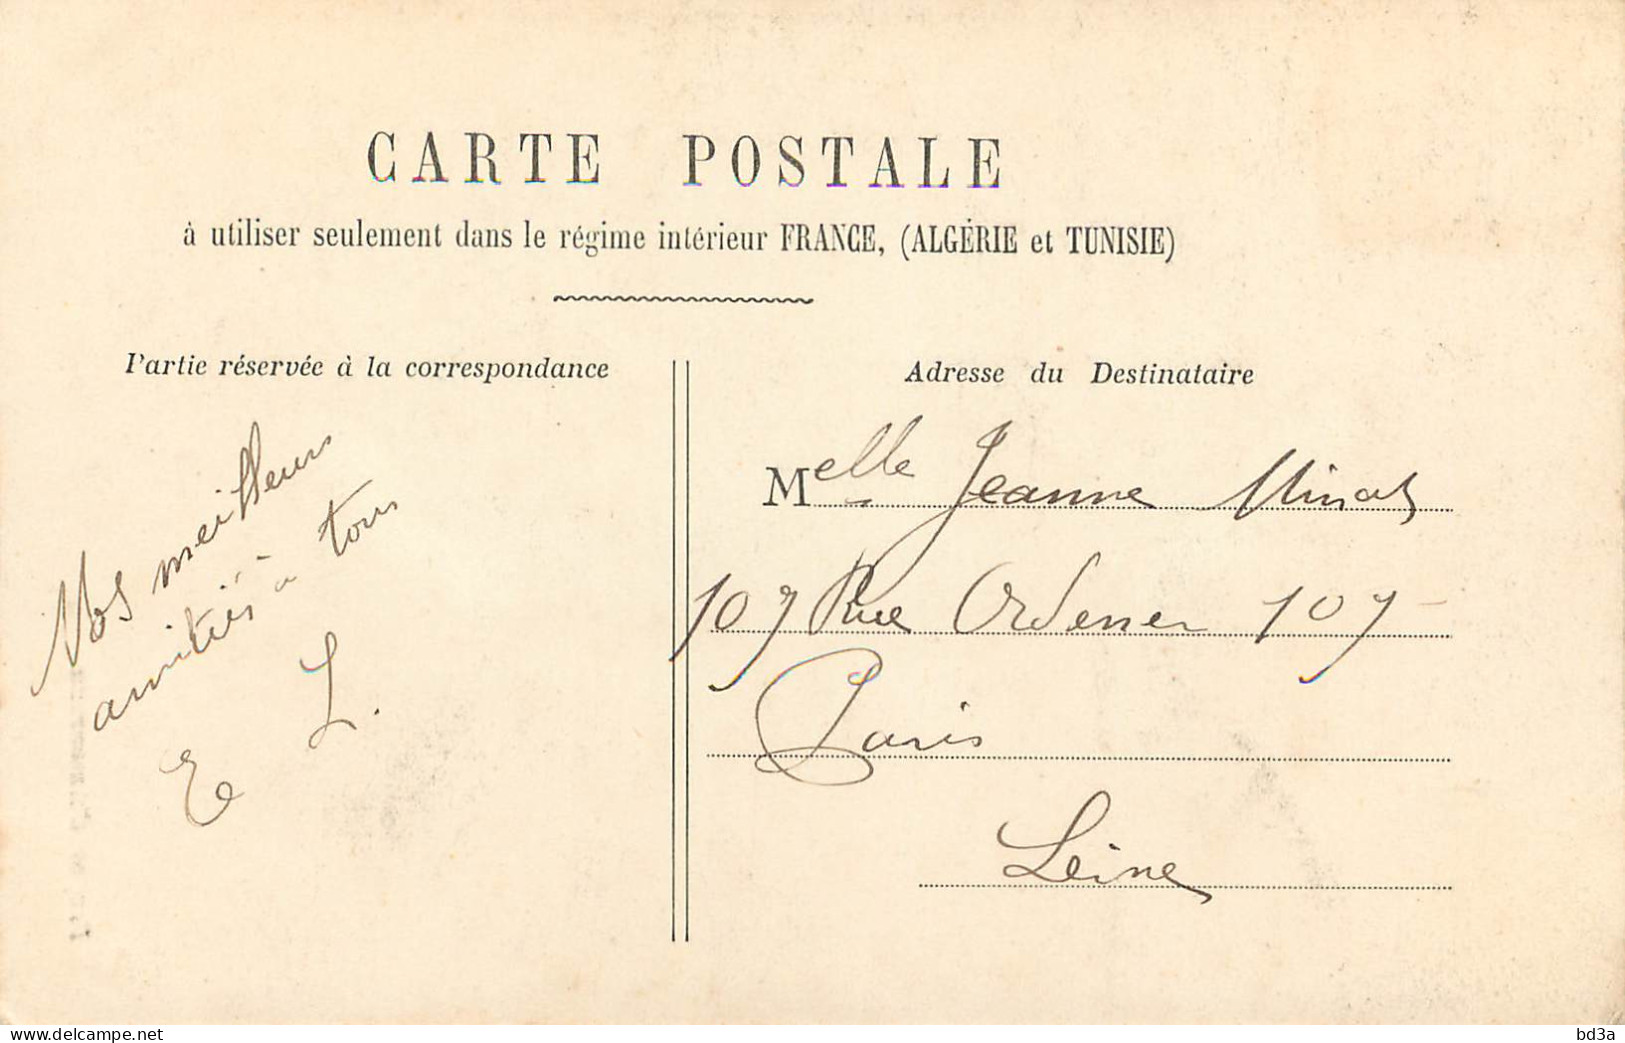 CARTE POSTALE
à utiliser seulement dans le régime intérieur FRANCE, (ALGÉRIE et TUNISIE)
Partie réservée à la correspondance
Nos meilleurs
amitiés à tous
E L.
Adresse du Destinataire
Melle Jeanne
107 Rue Ordener 107
Paris
Seine
www.delcampe.net
bd3a